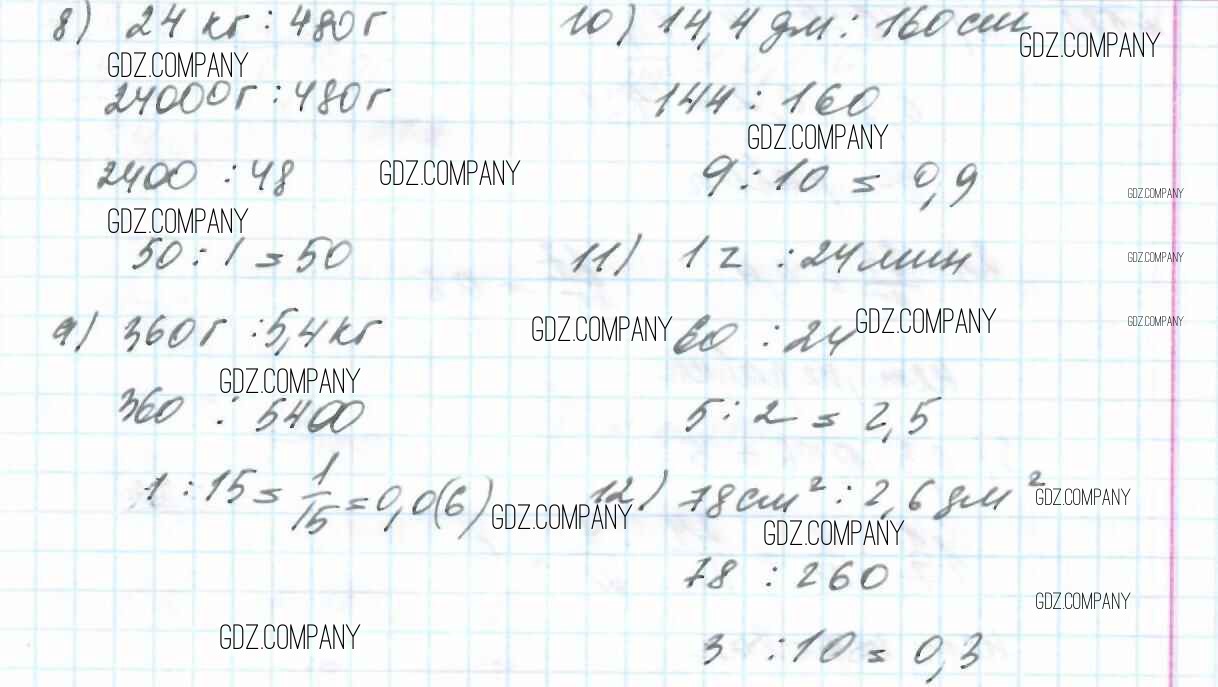 8) 24 кг : 480 г
GDZ.COMPANY
24000 г : 480 г
2400 : 48
GDZ.COMPANY
GDZ.COMPANY
50 : 1 = 50
9) 360 г : 5,4 кг
GDZ.COMPANY
GDZ.COMPANY
360 : 5400
1 : 15 = 1/15 = 0,0(6)
GDZ.COMPANY
GDZ.COMPANY
10) 14,4 дм : 160 см
GDZ.COMPANY
144 : 160
GDZ.COMPANY
9 : 10 = 0,9
GDZ.COMPANY
11) 1 ч : 24 мин
GDZ.COMPANY
60 : 24
GDZ.COMPANY
GDZ.COMPANY
5 : 2 = 2,5
12) 78 см² : 2,6 дм²
GDZ.COMPANY
GDZ.COMPANY
78 : 260
GDZ.COMPANY
3 : 10 = 0,3